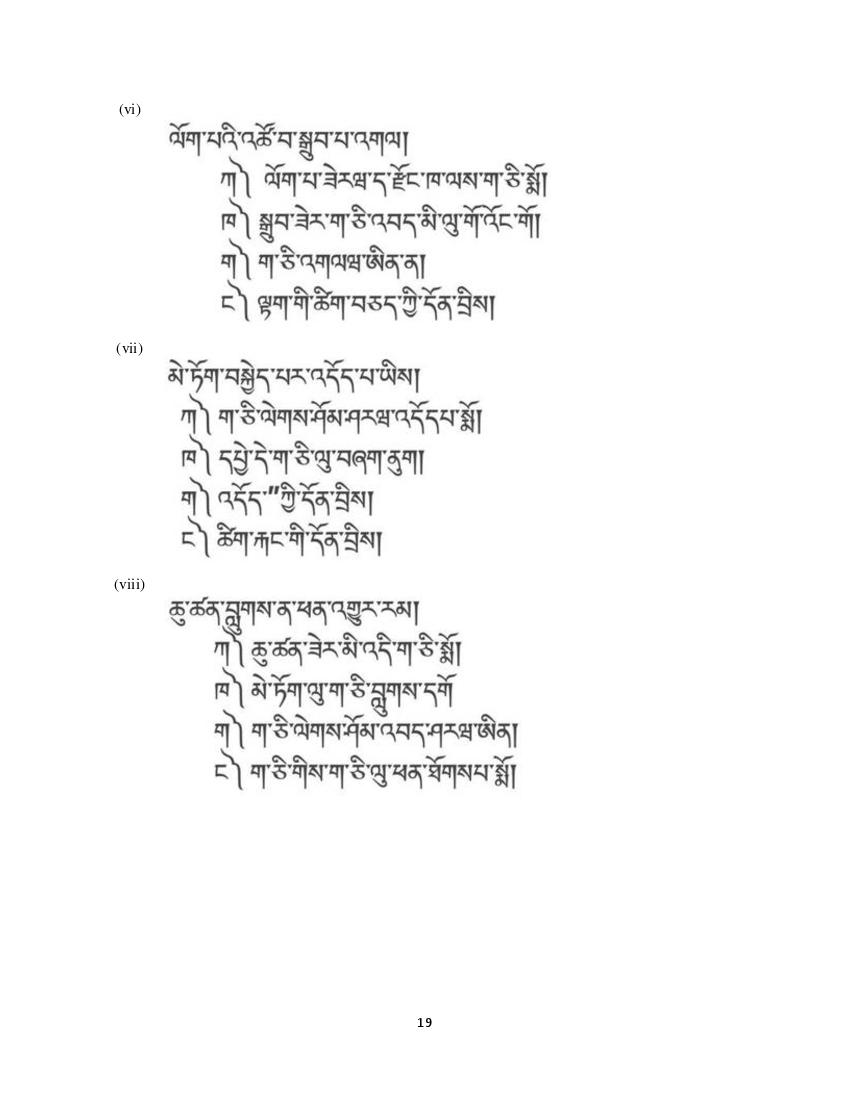 (vi)
ལོག་པའི་འཚོ་བ་སྒྲུབ་པ་འགལ།
ཀ༽ ལོག་པ་ཟེརཝ་ད་རྫོང་ཁ་ལས་ག་ཅི་སྨོ།
ཁ༽ སྒྲུབ་ཟེར་ག་ཅི་འབད་མི་ལུ་གོ་འོང་གོ།
ག༽ ག་ཅི་འགལཝ་ཨིན་ན།
ང༽ ལྟག་གི་ཚིག་བཅད་ཀྱི་དོན་བྲིས།
(vii)
མེ་ཏོག་བསྐྱེད་པར་འདོད་པ་ཡིས།
ཀ༽ ག་ཅི་ལེགས་ཤོམ་ཤརཝ་འདོདཔ་སྨོ།
ཁ༽ དཔྱེ་དེ་ག་ཅི་ལུ་བཞག་ནུག།
ག༽ འདོད་"ཀྱི་དོན་བྲིས།
ང༽ ཚིག་རྐང་གི་དོན་བྲིས།
(viii)
ཆུ་ཚན་བླུགས་ན་ཕན་འགྱུར་རམ།
ཀ༽ ཆུ་ཚན་ཟེར་མི་འདི་ག་ཅི་སྨོ།
ཁ༽ མེ་ཏོག་ལུ་ག་ཅི་བླུགས་དགོ
ག༽ ག་ཅི་ལེགས་ཤོམ་འབད་ཤརཝ་ཨིན།
ང༽ ག་ཅི་གིས་ག་ཅི་ལུ་ཕན་ཐོགསཔ་སྨོ།
19